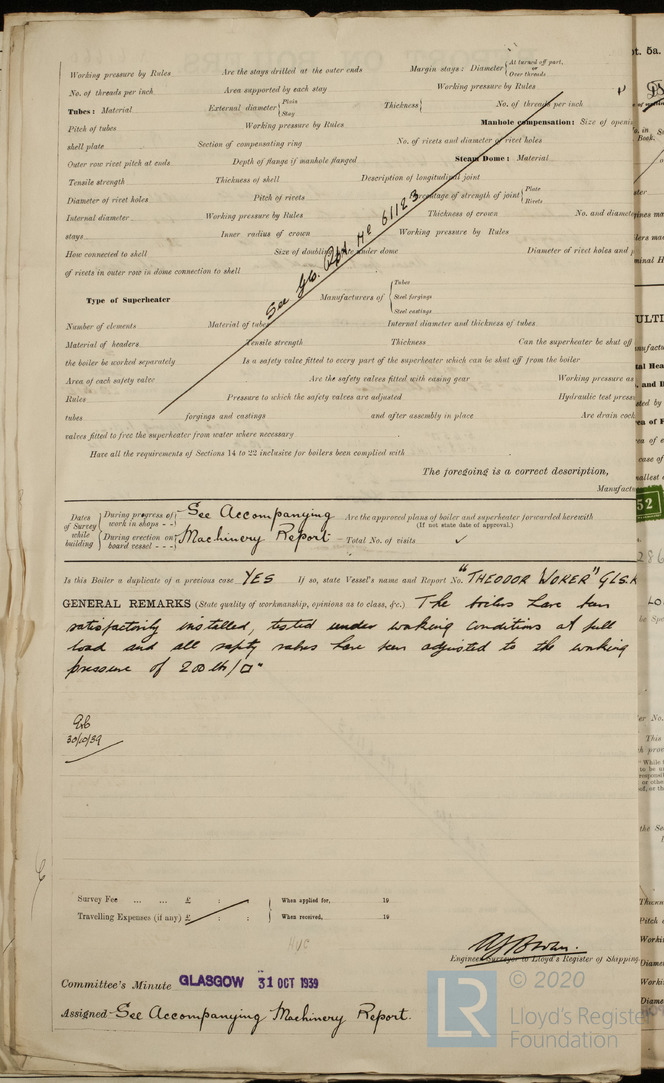 Working pressure by Rules Are the stays drilled at the outer ends Margin stays: Diameter { At turned off part, or Over threads
No. of threads per inch Area supported by each stay Working pressure by Rules
Tubes: Material External diameter { Plain Stay Thickness { No. of threads per inch
Pitch of tubes Working pressure by Rules Manhole compensation: Size of openi
shell plate Section of compensating ring No. of rivets and diameter of rivet holes
Outer row rivet pitch at ends Depth of flange if manhole flanged Steam Dome: Material
Tensile strength Thickness of shell Description of longitudinal joint
Diameter of rivet holes Pitch of rivets Percentage of strength of joint { Plate Rivets
Internal diameter Working pressure by Rules Thickness of crown No. and diamete
stays Inner radius of crown Working pressure by Rules
How connected to shell Size of doubling plate under dome Diameter of rivet holes and p
of rivets in outer row in dome connection to shell
See Gls. Rpt. No 61123
Type of Superheater Manufacturers of { Tubes Steel forgings Steel castings
Number of elements Material of tubes Internal diameter and thickness of tubes
Material of headers Tensile strength Thickness Can the superheater be shut off
the boiler be worked separately Is a safety valve fitted to every part of the superheater which can be shut off from the boiler
Area of each safety valve Are the safety valves fitted with easing gear Working pressure as
Rules Pressure to which the safety valves are adjusted Hydraulic test press
tubes forgings and castings and after assembly in place Are drain cock
valves fitted to free the superheater from water where necessary
Have all the requirements of Sections 14 to 22 inclusive for boilers been complied with
The foregoing is a correct description,
Manufactu
Dates of Survey while building { During progress of work in shops - - } See Accompanying Are the approved plans of boiler and superheater forwarded herewith
(If not state date of approval.)
{ During erection on board vessel - - - } Machinery Report - Total No. of visits ✓
Is this Boiler a duplicate of a previous case YES If so, state Vessel's name and Report No. "THEODOR WOKER" GLS.
GENERAL REMARKS (State quality of workmanship, opinions as to class, &c.) The boilers have been
satisfactorily installed, tested under working conditions at full
load and all safety valves have been adjusted to the working
pressure of 200 lb/□"
30/10/39
Survey Fee ... ... £ : : } When applied for, 19
Travelling Expenses (if any) £ : : } When received, 19
Engineer Surveyor to Lloyd's Register of Shipping
Committee's Minute GLASGOW 31 OCT 1939
Assigned See Accompanying Machinery Report.
LR
© 2020
Lloyd's Register
Foundation
t. 5a.
52